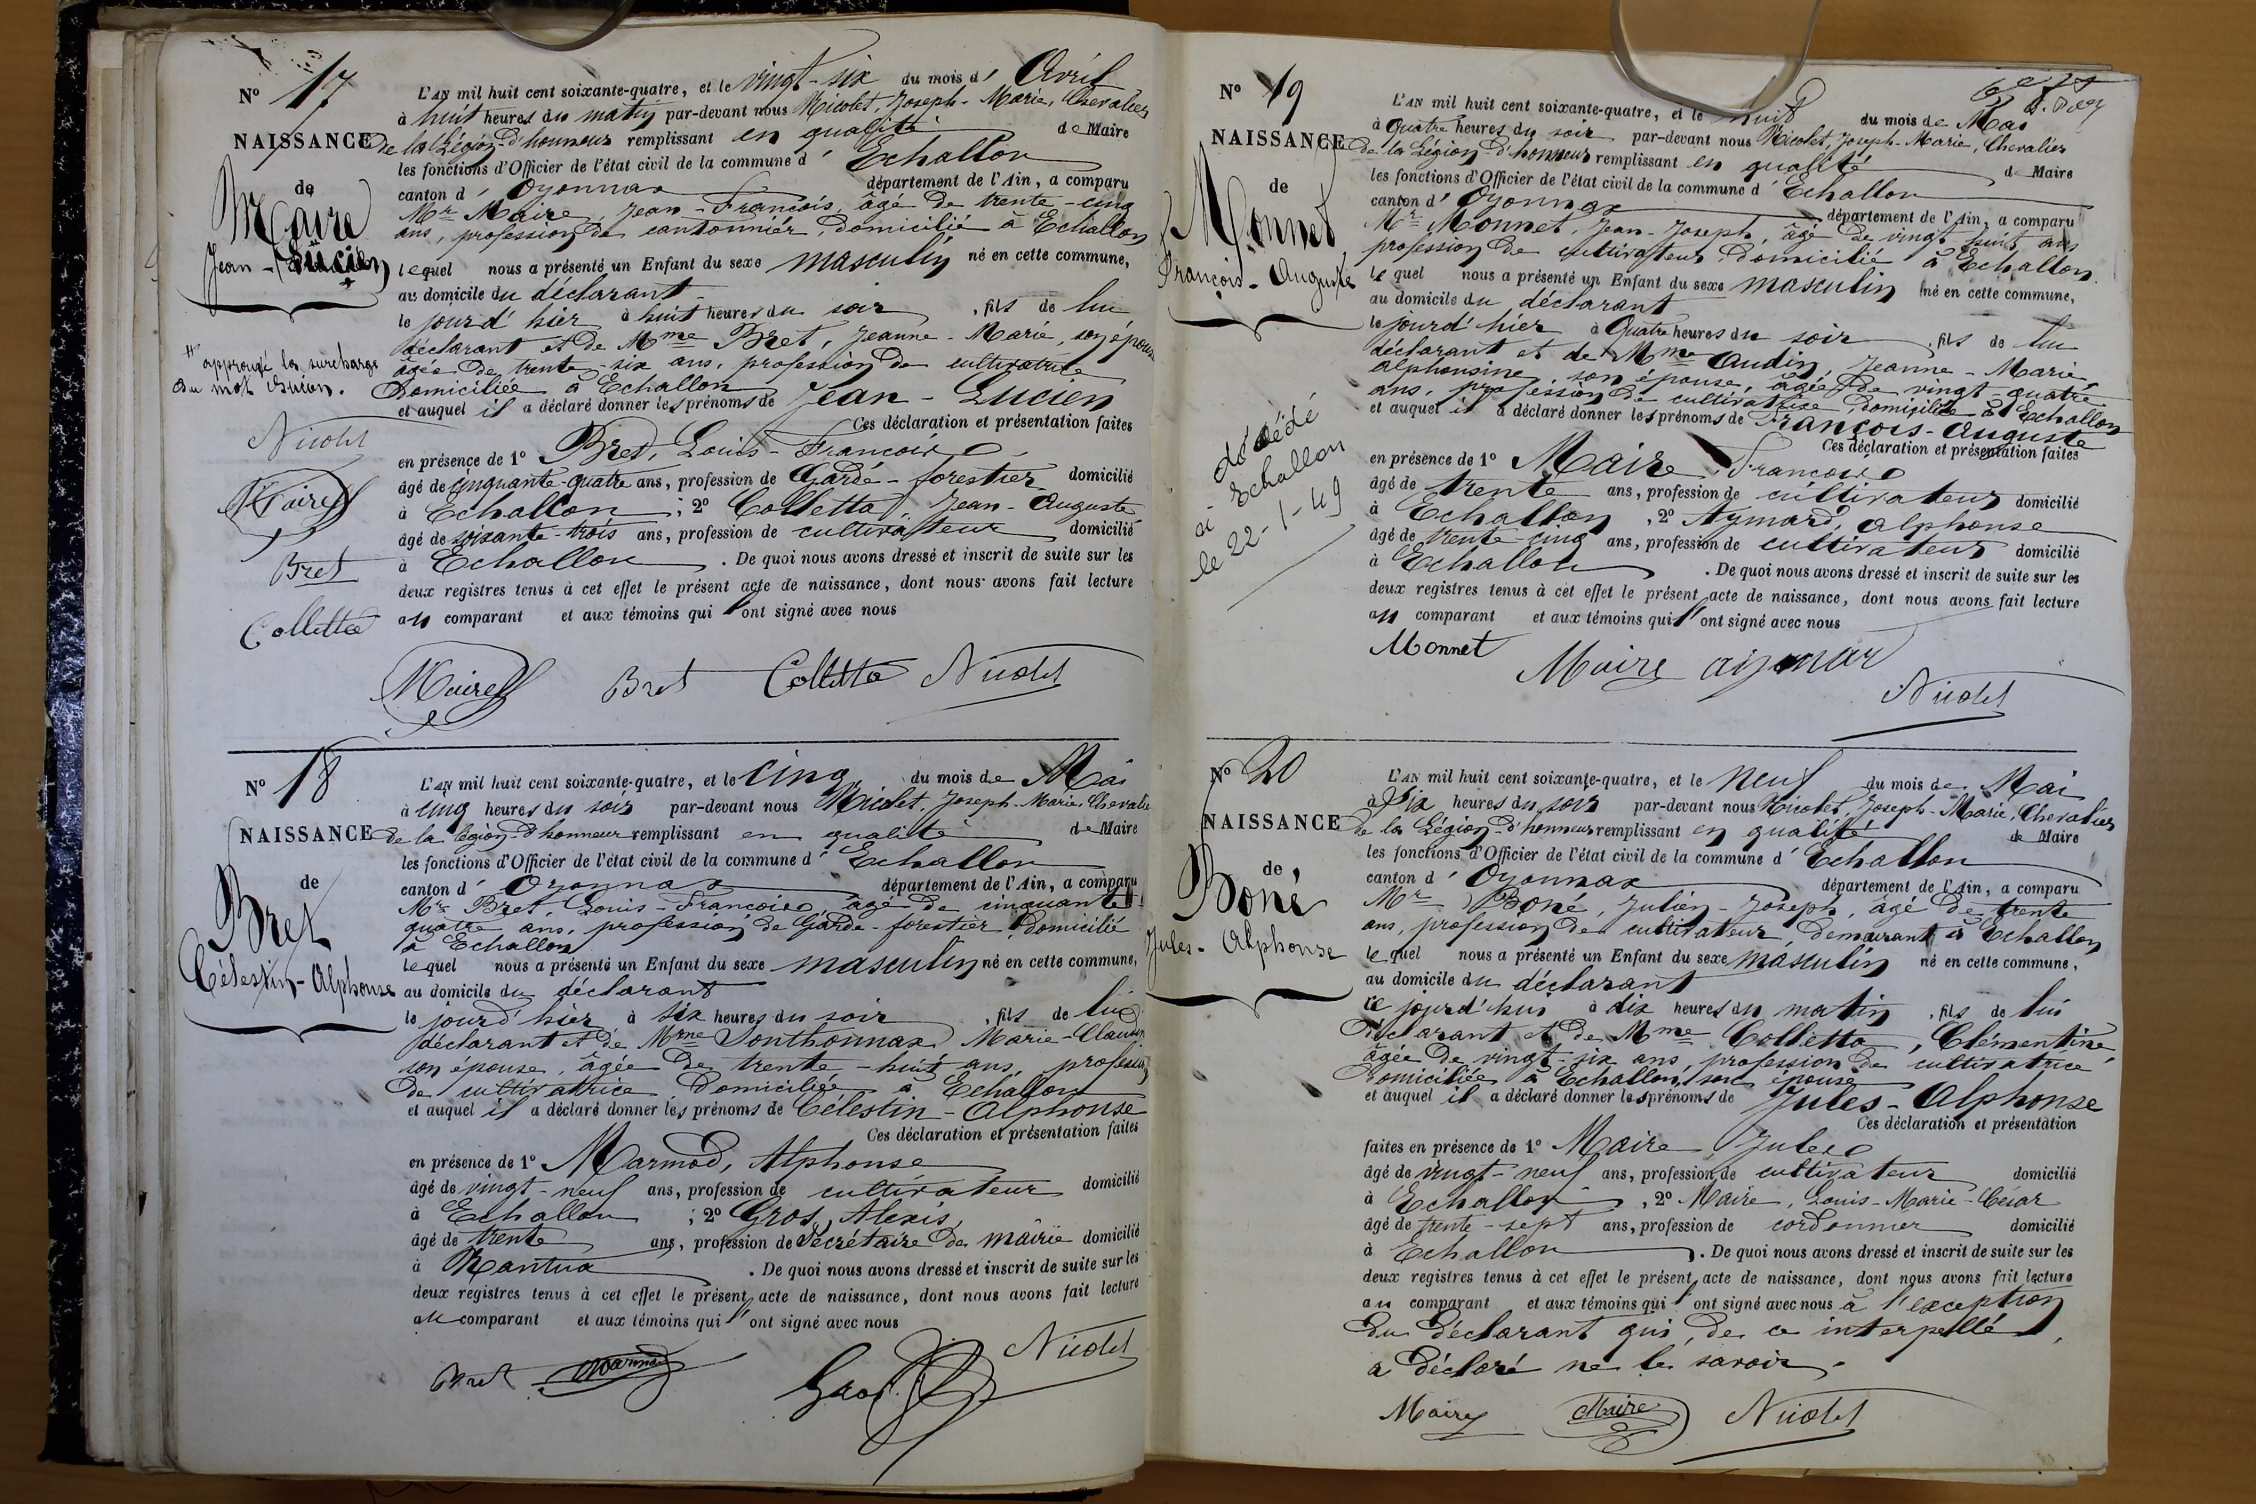 N° 17
NAISSANCE
de
Maire
Jean-Lucien
approuvé la surcharge
du mot Lucien.
Nicolet
Maire
Bret
Colletta
L'AN mil huit cent soixante-quatre, et le vingt-six du mois d' Avril
à huit heures du matin par-devant nous Nicolet, Joseph-Marie, Chevalier
de la Légion d'honneur remplissant en qualité de Maire
les fonctions d'Officier de l'état civil de la commune d' Echallon
canton d' Oyonnax département de l'Ain, a comparu
Mr Maire, Jean-François, âgé de trente-cinq
ans, profession de cantonnier, domicilié à Echallon
lequel nous a présenté un Enfant du sexe masculin né en cette commune,
au domicile du déclarant
le jour d'hier à huit heures du soir, fils de lui
déclarant et de Mme Bret, Jeanne-Marie, son épouse
âgée de trente-six ans, profession de cultivatrice
domiciliée à Echallon
et auquel il a déclaré donner les prénoms de Jean-Lucien
Ces déclaration et présentation faites
en présence de 1° Bret, Louis-François
âgé de cinquante-quatre ans, profession de Garde-forestier domicilié
à Echallon ; 2° Colletta, Jean-Auguste
âgé de soixante-trois ans, profession de cultivateur domicilié
à Echallon. De quoi nous avons dressé et inscrit de suite sur les
deux registres tenus à cet effet le présent acte de naissance, dont nous avons fait lecture
au comparant et aux témoins qui l'ont signé avec nous
Maire Bret Colletta Nicolet
N° 18
NAISSANCE
de
Bret
Célestin-Alphonse
L'AN mil huit cent soixante-quatre, et le cinq du mois de Mai
à cinq heures du soir par-devant nous Nicolet, Joseph-Marie, Chevalier
de la légion d'honneur remplissant en qualité de Maire
les fonctions d'Officier de l'état civil de la commune d' Echallon
canton d' Oyonnax département de l'Ain, a comparu
Mr Bret, Louis-François, âgé de cinquante
quatre ans, profession de Garde-forestier, domicilié
à Echallon
lequel nous a présenté un Enfant du sexe masculin né en cette commune,
au domicile du déclarant
le jour d'hier à six heures du soir, fils de lui
déclarant et de Mme Sonthonnax Marie-Claudine
son épouse, âgée de trente-huit ans, profession
de cultivatrice domiciliée à Echallon
et auquel il a déclaré donner les prénoms de Célestin-Alphonse
Ces déclaration et présentation faites
en présence de 1° Marmod, Alphonse
âgé de vingt-neuf ans, profession de cultivateur domicilié
à Echallon ; 2° Gros, Alexis
âgé de trente ans, profession de Secrétaire de mairie domicilié
à Nantua. De quoi nous avons dressé et inscrit de suite sur les
deux registres tenus à cet effet le présent acte de naissance, dont nous avons fait lecture
au comparant et aux témoins qui l'ont signé avec nous
Bret Marmod Gros Nicolet
N° 19
NAISSANCE
de
Monnet
François-Auguste
décédé
à Echallon
le 22-1-49
L'AN mil huit cent soixante-quatre, et le huit du mois de Mai
à quatre heures du soir par-devant nous Nicolet, Joseph-Marie, Chevalier
de la Légion d'honneur remplissant en qualité de Maire
les fonctions d'Officier de l'état civil de la commune d' Echallon
canton d' Oyonnax département de l'Ain, a comparu
Mr Monnet, Jean-Joseph, âgé de vingt huit ans
profession de cultivateur domicilié à Echallon
lequel nous a présenté un Enfant du sexe masculin né en cette commune,
au domicile du déclarant
le jour d'hier à quatre heures du soir, fils de lui
déclarant et de Mme Audin, Jeanne-Marie
Alphonsine son épouse, âgée de vingt-quatre
ans, profession de cultivatrice, domiciliée à Echallon
et auquel il a déclaré donner les prénoms de François-Auguste
Ces déclaration et présentation faites
en présence de 1° Maire, François
âgé de trente ans, profession de cultivateur domicilié
à Echallon, 2° Aymard, Alphonse
âgé de trente-cinq ans, profession de cultivateur domicilié
à Echallon. De quoi nous avons dressé et inscrit de suite sur les
deux registres tenus à cet effet le présent acte de naissance, dont nous avons fait lecture
au comparant et aux témoins qui l'ont signé avec nous
Monnet Maire aymar
Nicolet
N° 20
NAISSANCE
de
Boné
Jules-Alphonse
L'AN mil huit cent soixante-quatre, et le neuf du mois de Mai
à Six heures du soir par-devant nous Nicolet, Joseph-Marie, Chevalier
de la Légion d'honneur remplissant en qualité de Maire
les fonctions d'Officier de l'état civil de la commune d' Echallon
canton d' Oyonnax département de l'Ain, a comparu
Mr Boné, Julien-Joseph, âgé de trente
ans, profession de cultivateur, demeurant à Echallon
lequel nous a présenté un Enfant du sexe masculin né en cette commune,
au domicile du déclarant
ce jourd'hui à dix heures du matin, fils de lui
déclarant et de Mme Colletta, Clémentine,
âgée de vingt-six ans, profession de cultivatrice
domiciliée à Echallon, son épouse
et auquel il a déclaré donner les prénoms de Jules-Alphonse
Ces déclaration et présentation
faites en présence de 1° Maire Jules
âgé de vingt-neuf ans, profession de cultivateur domicilié
à Echallon, 2° Maire, Louis-Marie-César
âgé de trente-sept ans, profession de cordonnier domicilié
à Echallon. De quoi nous avons dressé et inscrit de suite sur les
deux registres tenus à cet effet le présent acte de naissance, dont nous avons fait lecture
au comparant et aux témoins qui l'ont signé avec nous à l'exception
du déclarant qui, de ce interpellé,
a déclaré ne le savoir.
Maire Maire Nicolet